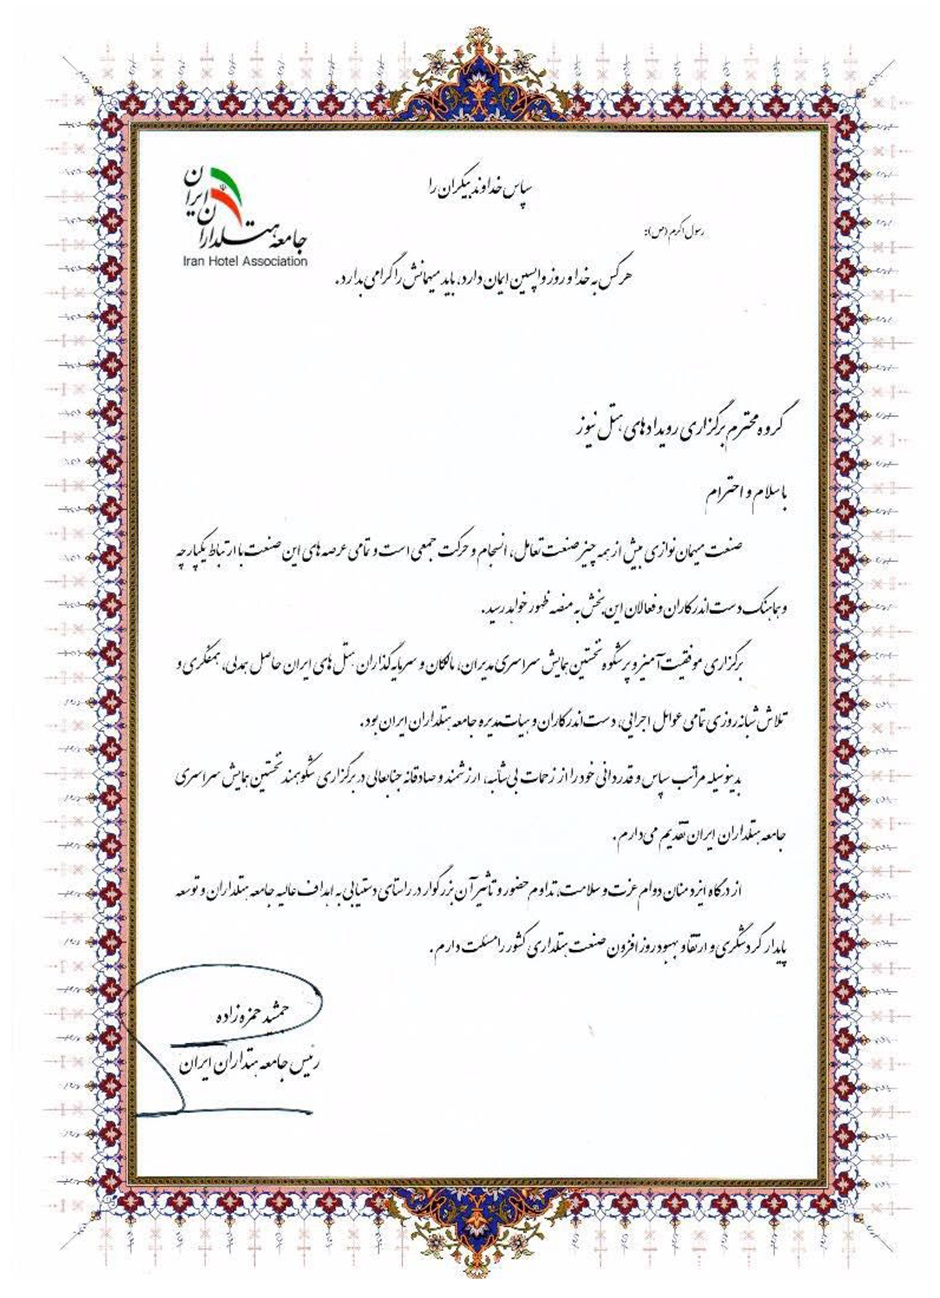 سپاس خداوند بیکران را
جامعه هتلداران ایران
Iran Hotel Association
رسول اکرم (ص):
هر کس به خدا و روز واپسین ایمان دارد، باید میهمانش را گرامی بدارد.
گروه محترم برگزاری رویدادهای هتل نیوز
با سلام و احترام
صنعت میهمان نوازی بیش از همه چیز صنعت تعامل، انسجام و حرکت جمعی است و تمامی عرصه های این صنعت با ارتباط یکپارچه
و هماهنگ دست اندرکاران و فعالان این بخش به منصه ظهور خواهد رسید.
برگزاری موفقیت آمیز و پرشکوه نخستین همایش سراسری مدیران، مالکان و سرمایه گذاران هتل های ایران حاصل همدلی، همفکری و
تلاش شبانه روزی تمامی عوامل اجرایی، دست اندرکاران و هیات مدیره جامعه هتلداران ایران بود.
بدینوسیله مراتب سپاس و قدردانی خود را از زحمات بی شائبه، ارزشمند و صادقانه جنابعالی در برگزاری شکوهمند نخستین همایش سراسری
جامعه هتلداران ایران تقدیم می دارم.
از درگاه ایزد منان دوام عزت و سلامت، تداوم حضور و تأثیر آن بزرگوار در راستای دستیابی به اهداف عالیه جامعه هتلداران و توسعه
پایدار گردشگری و ارتقاء و بهبود روز افزون صنعت هتلداری کشور را مسئلت دارم.
جمشید حمزه زاده
رئیس جامعه هتلداران ایران